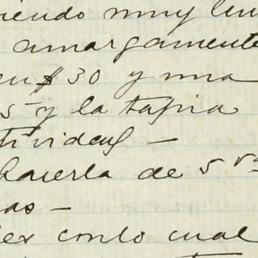 iendo muy lin
amargamente
en $30 y una
5- y la tapia
tividad -
hacerla de 5 va
as -
der con lo cual